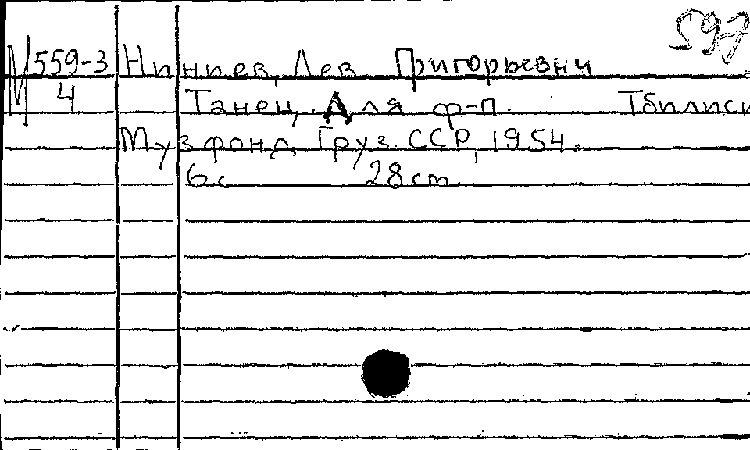 597
М 559-3 Ниниев, Лев Григорьевич
4 Танец. Для ф-п. Тбилиси
Музфонд Груз. ССР, 1954.
6 с 28 cm